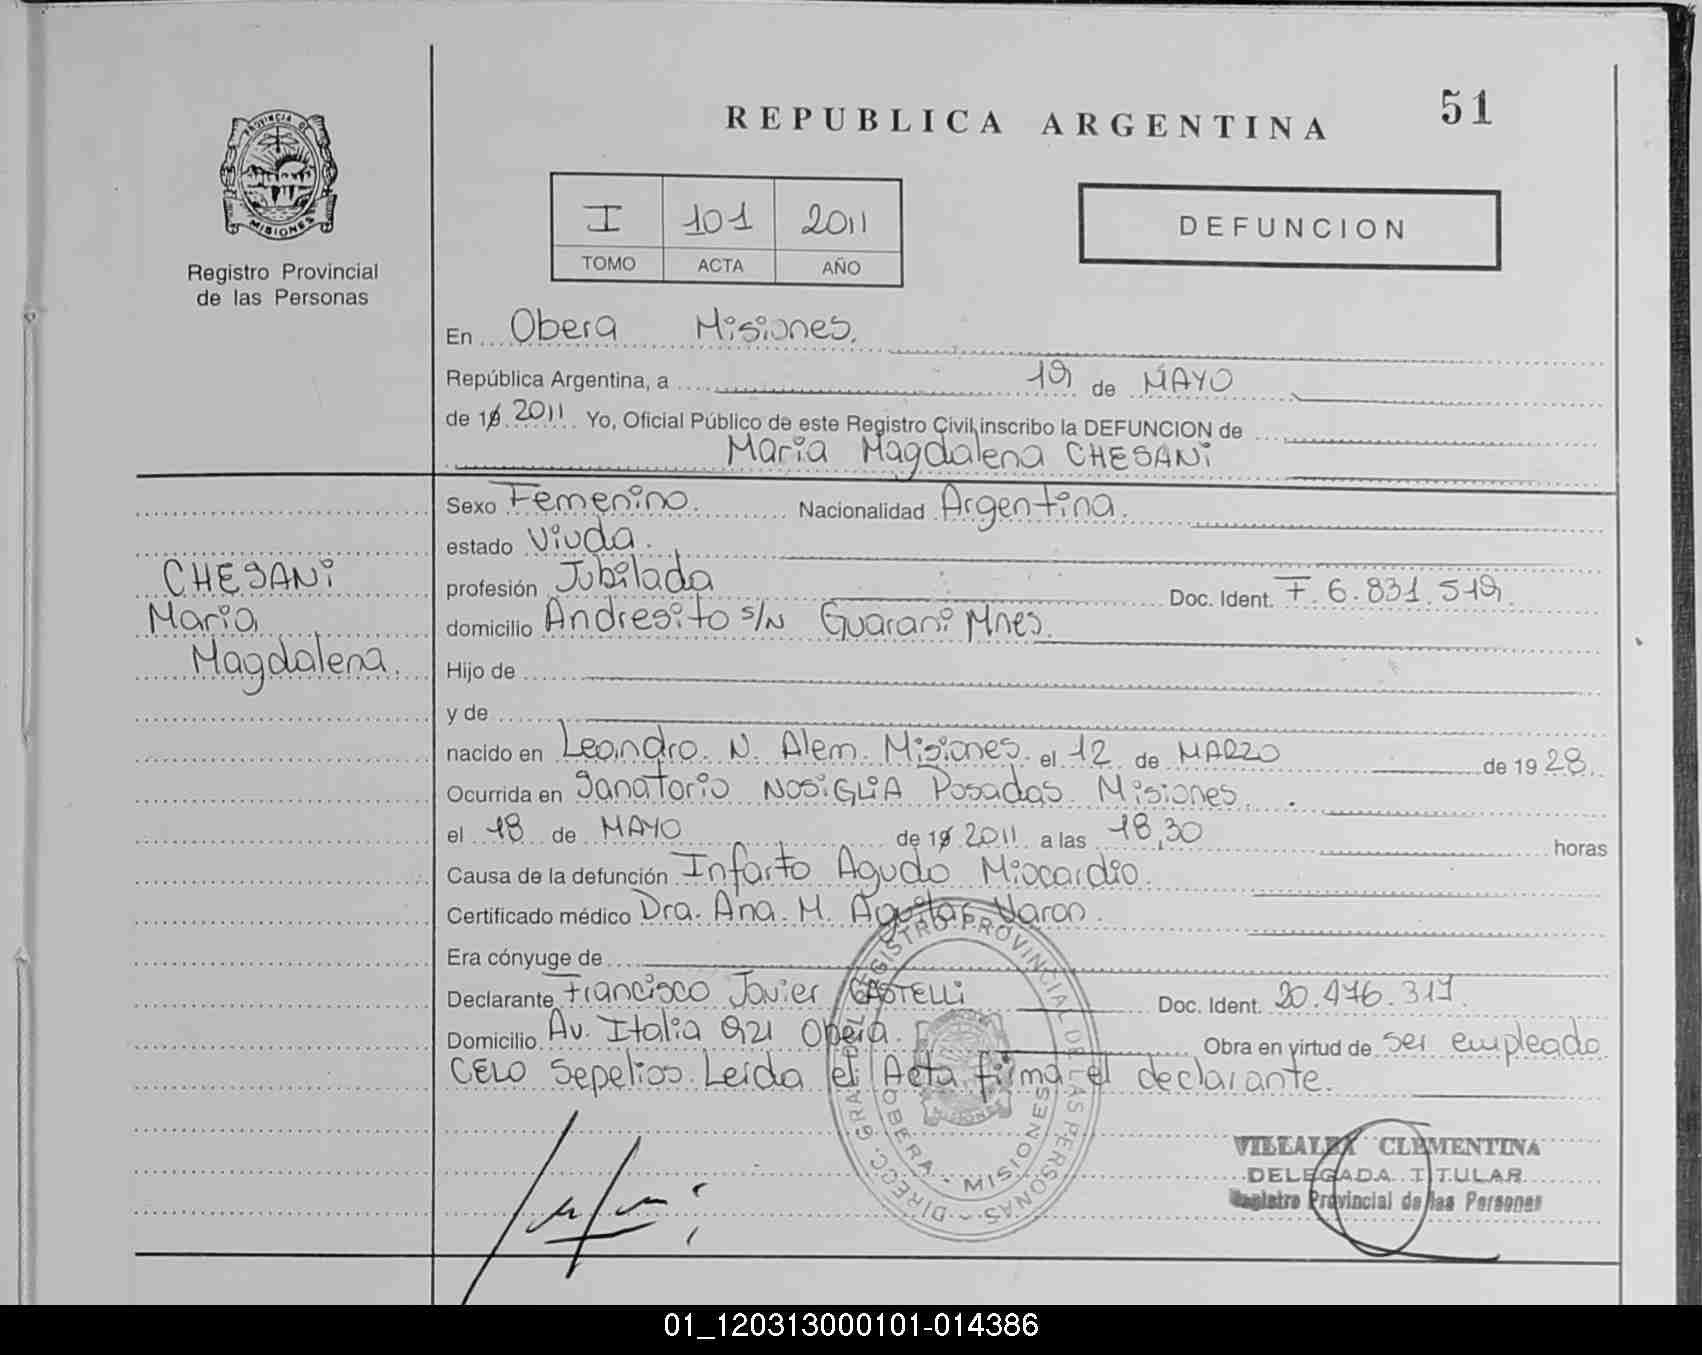 51
REPUBLICA ARGENTINA
PROVINCIA DE
MISIONES
Registro Provincial
de las Personas
I 101 2011
TOMO ACTA AÑO
DEFUNCION
En Obera Misiones.
República Argentina, a 19 de MAYO
de 19 2011 Yo, Oficial Público de este Registro Civil, inscribo la DEFUNCION de
Maria Magdalena CHESANi
CHESANi
Maria
Magdalena.
Sexo Femenino. Nacionalidad Argentina.
estado Viuda.
profesión Jubilada Doc. Ident. F. 6.831.519.
domicilio Andresito s/N Guarani Mnes.
Hijo de
y de
nacido en Leandro. N. Alem. Misiones. el 12 de MARZO de 19 28.
Ocurrida en Sanatorio NOSiGLiA Posadas Misiones.
el 18 de MAYO de 19 2011 a las 18,30 horas
Causa de la defunción Infarto Agudo Miocardio.
Certificado médico Dra. Ana. M. Aguilar Varon.
Era cónyuge de
Declarante Francisco Javier CASTELLi Doc. Ident. 20.476.317.
Domicilio Av. Italia 921 Obera. Obra en virtud de ser empleado
CELO Sepelios. Leida el Acta firma el declarante.
DIRECC. GRAL. DEL REGISTRO PROVINCIAL DE LAS PERSONAS
OBERA - MISIONES
VILLALBA CLEMENTINA
DELEGADA TITULAR
Registro Provincial de las Personas
01_120313000101-014386